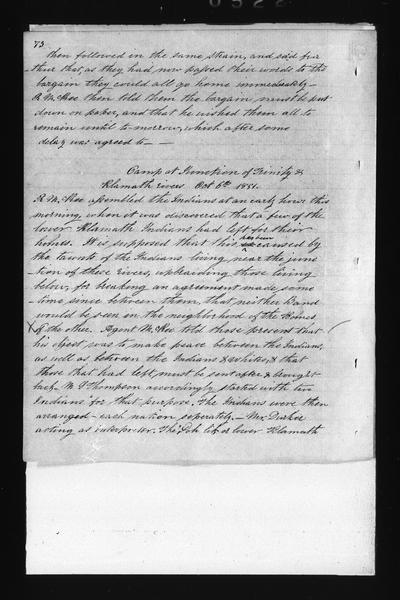 73
then followed in the same strain, and said fur
-ther that, as they had now passed their words to the
bargain they could all go home immediately -
R. McKee then told them the bargain must be put
down on paper, and that he wished them all to
remain until to-morrow, which after some
delay was agreed to - -
Camp at Junction of Trinity &
Klamath rivers Oct 6th 1851.
R. McKee assembled the Indians at an early hour this
morning, when it was discovered that a few of the
lower Klamath Indians had left for their
homes. It is supposed that this has been caused by
the taunts of the Indians living near the junc
-tion of these rivers, upbraiding those living
below, for breaking an agreement made some
time since between them, that neither Band
would be seen in the neighborhood of the homes
of the other. Agent McKee told those present that
his object was to make peace between the Indians,
as well as between the Indians & whites, & that
those that had left, must be sent after & brought
back. Thompson accordingly started with two
Indians for that purpose. The Indians were then
arranged - each nation seperately. - Mr. Durkee
acting as interpreter. The Poh lik or lower Klamath